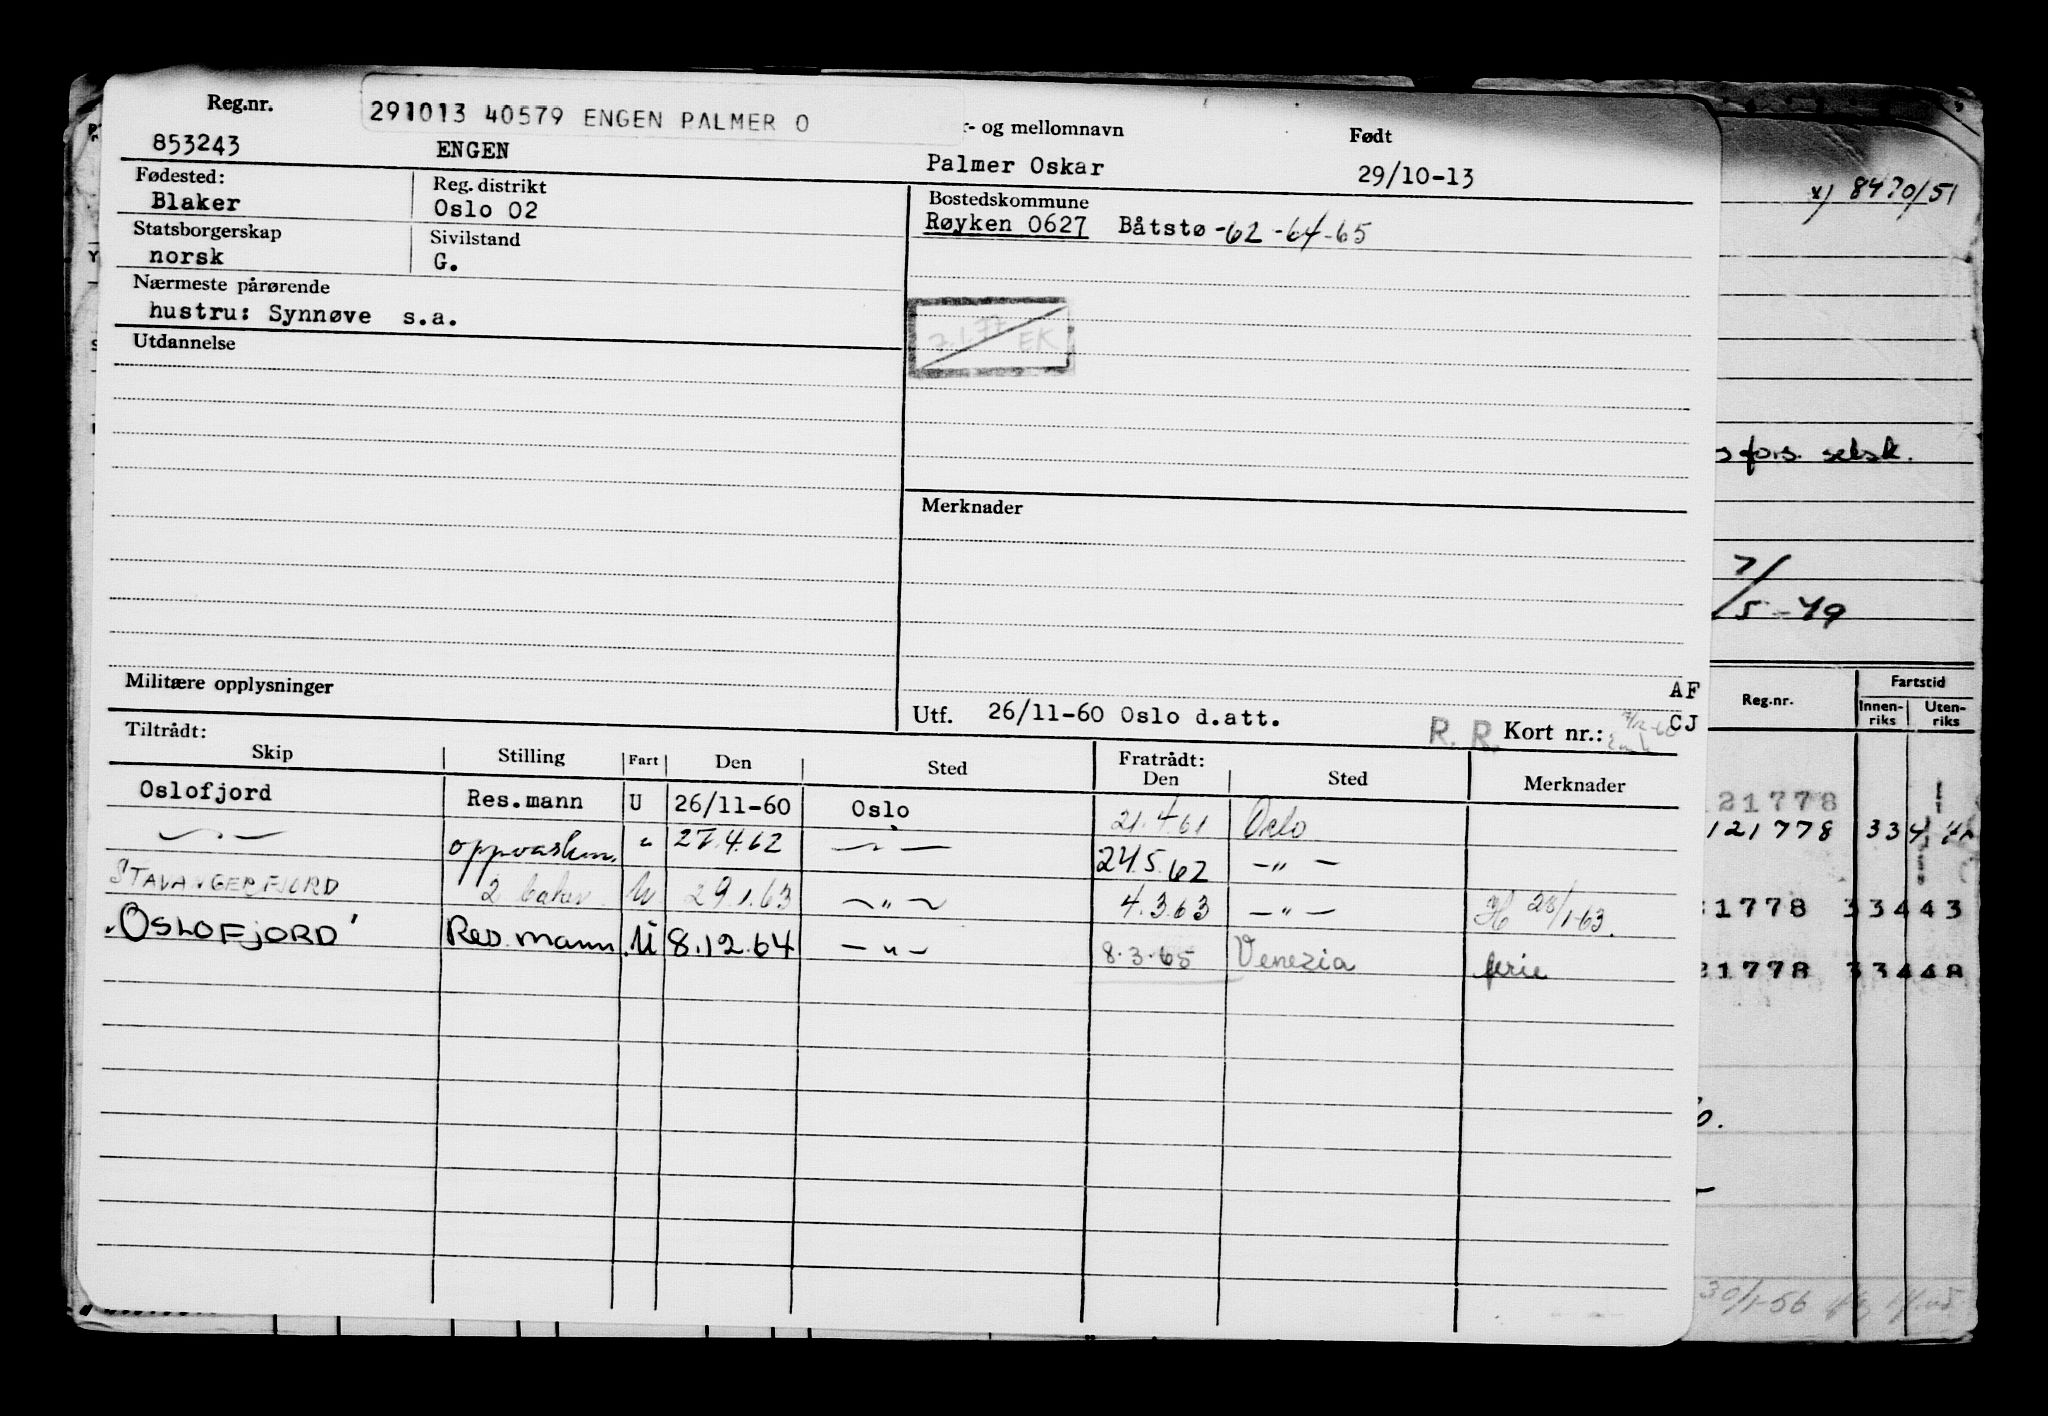 Reg.nr.
291013 40579 ENGEN PALMER O
- og mellomnavn
Født
853243 ENGEN Palmer Oskar 29/10-13
Fødested: Reg. distrikt Bostedskommune
Blaker Oslo 02 Røyken 0627 Båtstø -62-64-65
Statsborgerskap Sivilstand
norsk G.
Nærmeste pårørende
hustru: Synnøve s.a.
Utdannelse
7.1.77 EK
Merknader
Militære opplysninger
Utf. 26/11-60 Oslo d.att.
R. R. Kort nr.:
AF
CJ
Tiltrådt: Fratrådt:
Skip Stilling Fart Den Sted Den Sted Merknader
Oslofjord Res.mann U 26/11-60 Oslo 21.4.61 Oslo
— " — oppvaskm. " 27.4.62 — " — 24.5.62 — " —
STAVANGERFJORD 2 baker U 29.1.63 — " — 4.3.63 — " — H 28/1-63.
"OSLOFJORD" Res.mann. U 8.12.64 — " — 8.3.65 Venezia ferie
x) 8470/51
sfors. selsk.
7/5-49
Reg.nr. Fartstid
Innen-riks Uten-riks
121778
121778 334
1778 33443
21778 33448
30/1-56